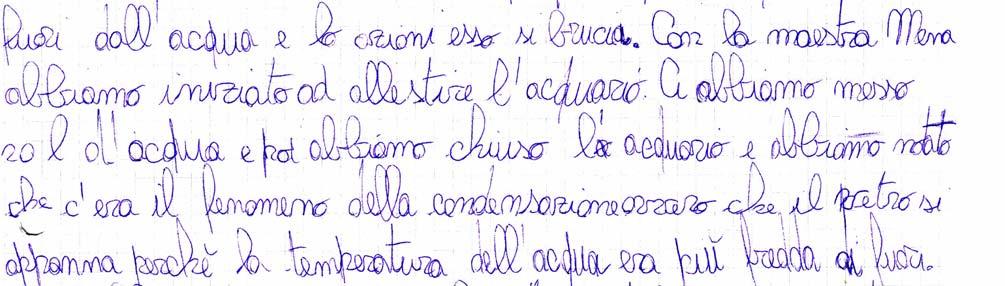 fuori dall'acqua e lo azioni esso si brucia. Con la maestra Mena
abbiamo iniziato ad allestire l'acquario. Ci abbiamo messo
20 l d'acqua e poi abbiamo chiuso la acquario e abbiamo notato
che c'era il fenomeno della condensazione ovvero che il vetro si
appanna perchè la temperatura dell'acqua era più fredda di fuori.